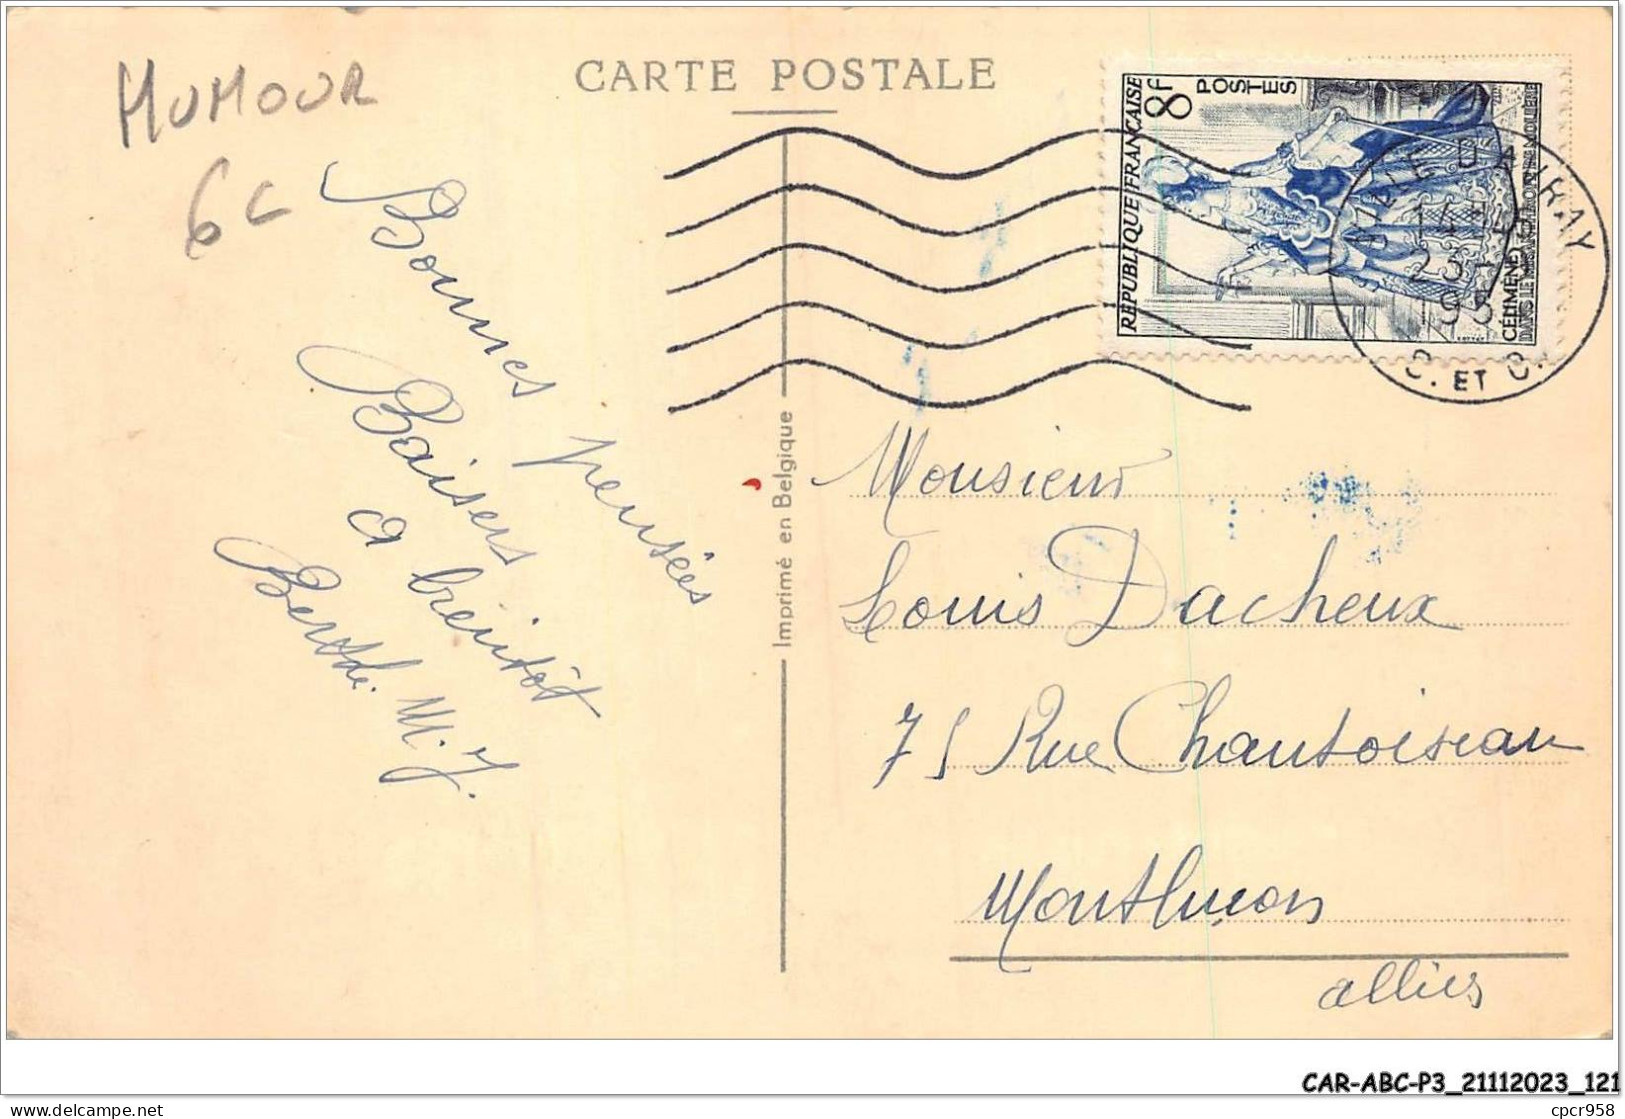 CARTE POSTALE
HUMOUR
6C
Bonnes pensées
Baisers
a bientôt
Berthe. M. J.
Imprimé en Belgique
REPUBLIQUE FRANÇAISE
8F
POSTES
CÉLIMÈNE
DANS LE MISANTHROPE DE MOLIÈRE
VILLE D'AVRAY
S. ET O.
Monsieur
Louis Dacheux
75 Rue Chantoiseau
Montluçon
allier
CAR-ABC-P3_21112023_121
delcampe.net
cpcr958